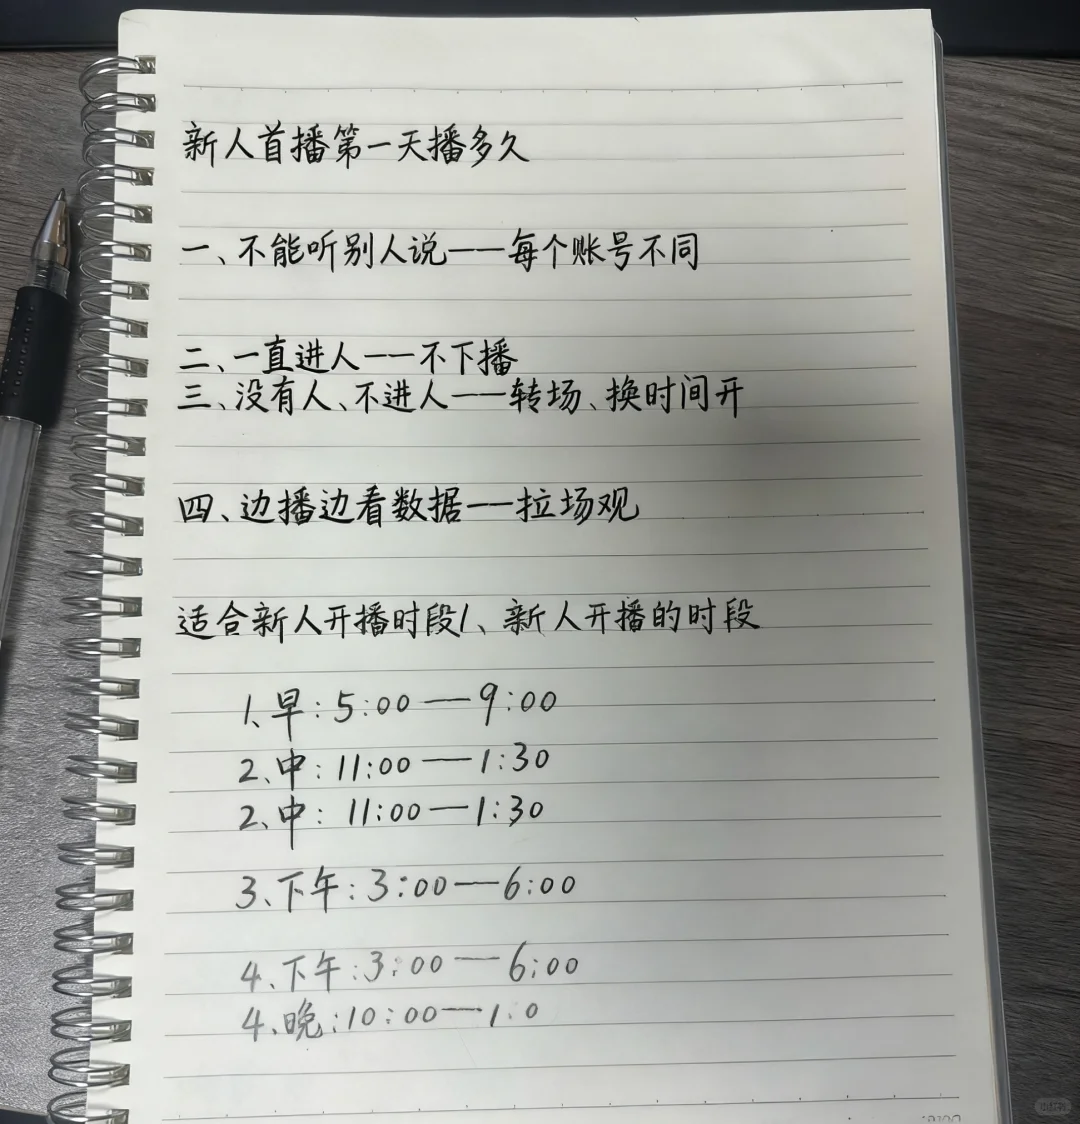 新人首播第一天播多久
一、不能听别人说——每个账号不同
二、一直进人——不下播
三、没有人、不进人——转场、换时间开
四、边播边看数据——拉场观
适合新人开播时段1、新人开播的时段
1、早:5:00—9:00
2、中:11:00—1:30
2、中:11:00—1:30
3、下午:3:00—6:00
4、下午:3:00—6:00
4、晚:10:00—1:0